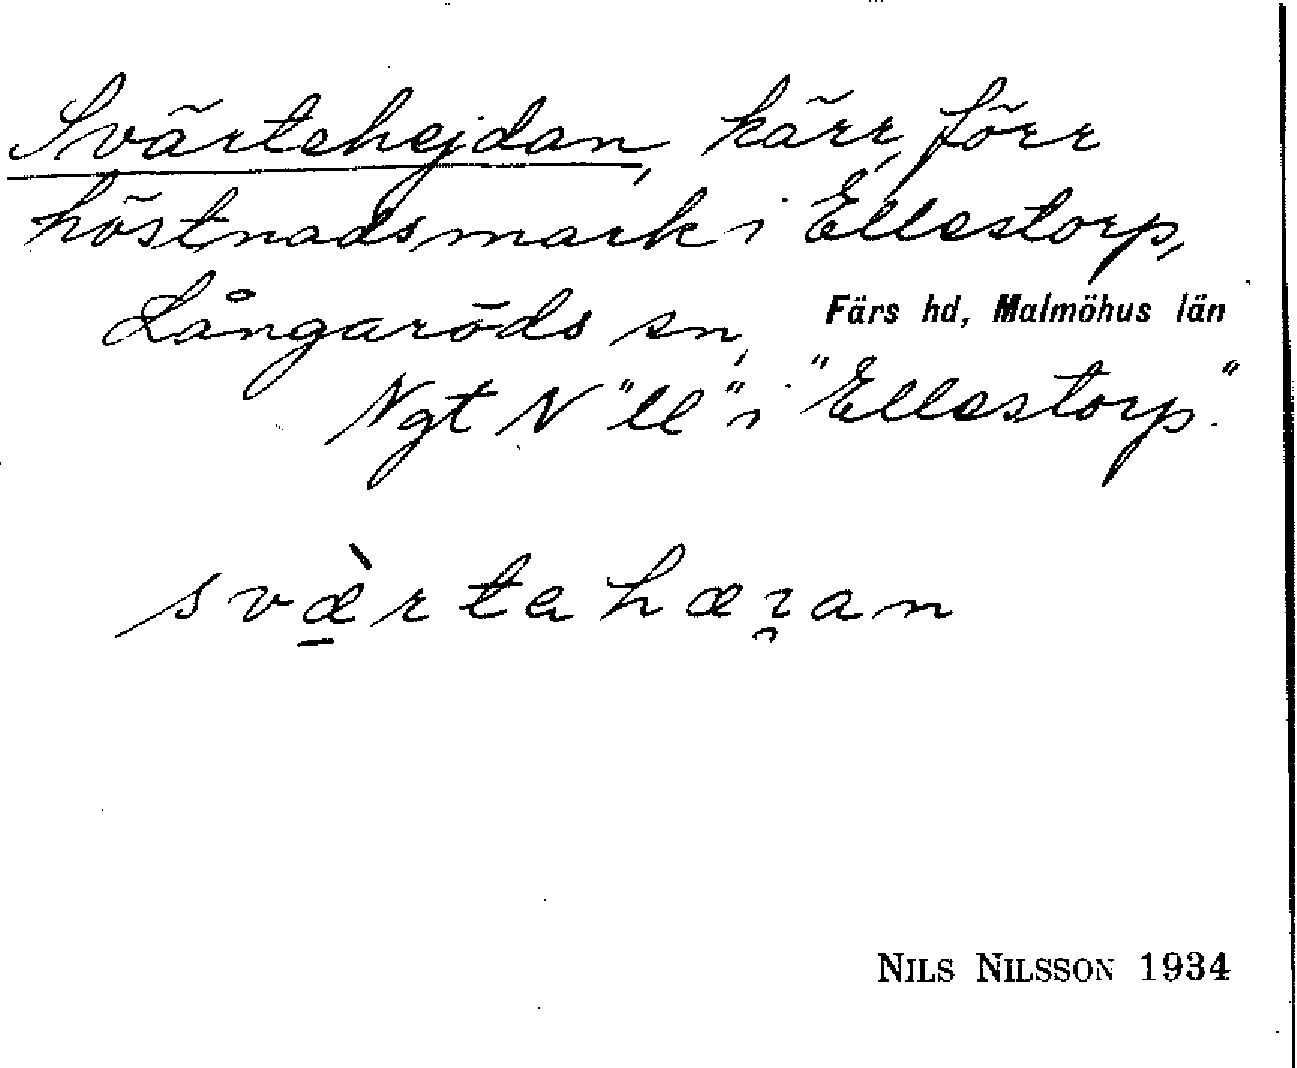 Svärtehejdan, kärr, förr
höstnadsmark i Ellestorp,
Långaröds sn, Färs hd, Malmöhus län
Ngt N "ll" i "Ellestorp."
svæ̱̀rtahæı̯an
NILS NILSSON 1934